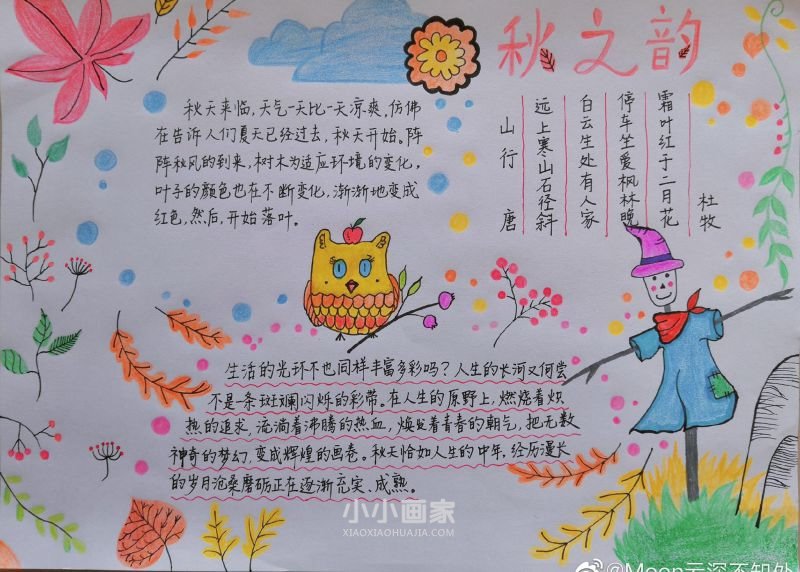 秋之韵
秋天来临，天气一天比一天凉爽，仿佛
在告诉人们夏天已经过去，秋天开始。阵
阵秋风的到来，树木为适应环境的变化，
叶子的颜色也在不断变化，渐渐地变成
红色，然后，开始落叶。
山行 唐
远上寒山石径斜
白云生处有人家
停车坐爱枫林晚
霜叶红于二月花
杜牧
生活的光环不也同样丰富多彩吗？人生的长河又何尝
不是一条斑斓闪烁的彩带。在人生的原野上，燃烧着炽
热的追求，流淌着沸腾的热血，焕发着青春的朝气，把无数
神奇的梦幻，变成辉煌的画卷。秋天恰如人生的中年，经历漫长
的岁月沧桑磨砺正在逐渐充实、成熟。
小小画家
XIAOXIAOHUAJIA.COM
@Moon云深不知处